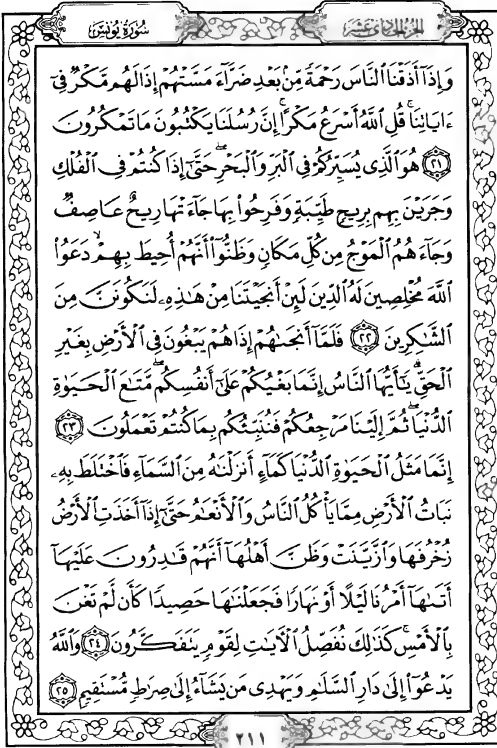 الجزء الحادي عشر
سورة يونس
وَإِذَآ أَذَقْنَا ٱلنَّاسَ رَحْمَةً مِّنۢ بَعْدِ ضَرَّآءَ مَسَّتْهُمْ إِذَا لَهُم مَّكْرٌ فِىٓ
ءَايَاتِنَا ۚ قُلِ ٱللَّهُ أَسْرَعُ مَكْرًا ۚ إِنَّ رُسُلَنَا يَكْتُبُونَ مَا تَمْكُرُونَ
﴿٢١﴾ هُوَ ٱلَّذِى يُسَيِّرُكُمْ فِى ٱلْبَرِّ وَٱلْبَحْرِ ۖ حَتَّىٰٓ إِذَا كُنتُمْ فِى ٱلْفُلْكِ
وَجَرَيْنَ بِهِم بِرِيحٍ طَيِّبَةٍ وَفَرِحُوا۟ بِهَا جَآءَتْهَا رِيحٌ عَاصِفٌ
وَجَآءَهُمُ ٱلْمَوْجُ مِن كُلِّ مَكَانٍ وَظَنُّوٓا۟ أَنَّهُمْ أُحِيطَ بِهِمْ ۙ دَعَوُا۟
ٱللَّهَ مُخْلِصِينَ لَهُ ٱلدِّينَ لَئِنْ أَنجَيْتَنَا مِنْ هَـٰذِهِۦ لَنَكُونَنَّ مِنَ
ٱلشَّـٰكِرِينَ ﴿٢٢﴾ فَلَمَّآ أَنجَىٰهُمْ إِذَا هُمْ يَبْغُونَ فِى ٱلْأَرْضِ بِغَيْرِ
ٱلْحَقِّ ۗ يَـٰٓأَيُّهَا ٱلنَّاسُ إِنَّمَا بَغْيُكُمْ عَلَىٰٓ أَنفُسِكُم ۖ مَّتَـٰعَ ٱلْحَيَوٰةِ
ٱلدُّنْيَا ۖ ثُمَّ إِلَيْنَا مَرْجِعُكُمْ فَنُنَبِّئُكُم بِمَا كُنتُمْ تَعْمَلُونَ ﴿٢٣﴾
إِنَّمَا مَثَلُ ٱلْحَيَوٰةِ ٱلدُّنْيَا كَمَآءٍ أَنزَلْنَـٰهُ مِنَ ٱلسَّمَآءِ فَٱخْتَلَطَ بِهِۦ
نَبَاتُ ٱلْأَرْضِ مِمَّا يَأْكُلُ ٱلنَّاسُ وَٱلْأَنْعَـٰمُ حَتَّىٰٓ إِذَآ أَخَذَتِ ٱلْأَرْضُ
زُخْرُفَهَا وَٱزَّيَّنَتْ وَظَنَّ أَهْلُهَآ أَنَّهُمْ قَـٰدِرُونَ عَلَيْهَآ
أَتَىٰهَآ أَمْرُنَا لَيْلًا أَوْ نَهَارًا فَجَعَلْنَـٰهَا حَصِيدًا كَأَن لَّمْ تَغْنَ
بِٱلْأَمْسِ ۚ كَذَٰلِكَ نُفَصِّلُ ٱلْـَٔايَـٰتِ لِقَوْمٍ يَتَفَكَّرُونَ ﴿٢٤﴾ وَٱللَّهُ
يَدْعُوٓا۟ إِلَىٰ دَارِ ٱلسَّلَـٰمِ وَيَهْدِى مَن يَشَآءُ إِلَىٰ صِرَٰطٍ مُّسْتَقِيمٍ ﴿٢٥﴾
٢١١